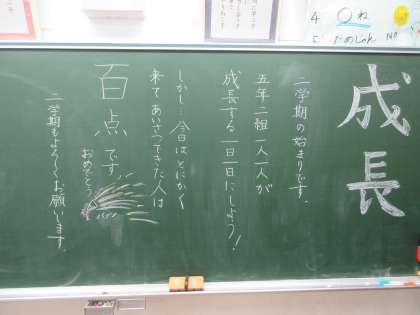 成長
二学期の始まりです。
五年二組一人一人が
成長する一日一日にしよう！
しかし…今日はとにかく
来てあいさつできた人は
百点です。
おめでとう
二学期もよろしくお願いします。